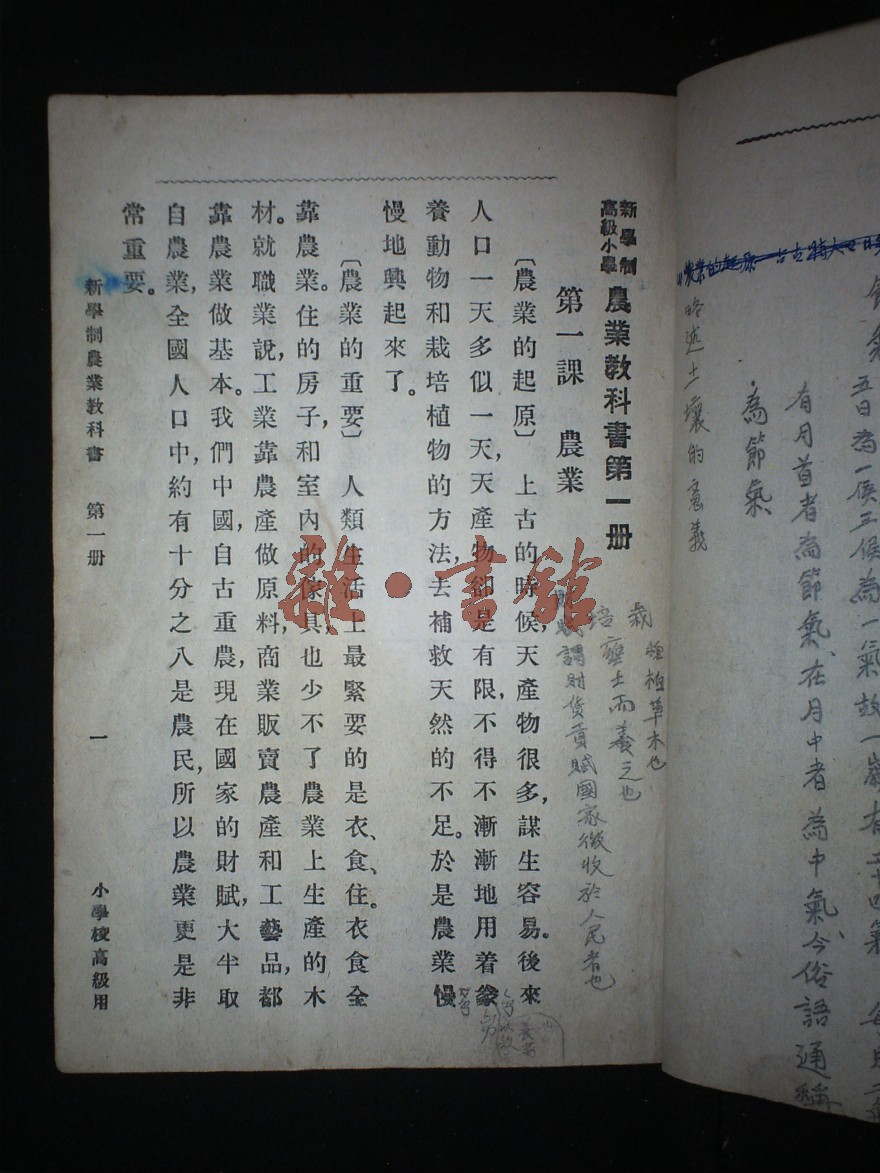 有月首者為節氣、在月中者為中氣、今俗語通稱
為節氣
略述土壤的意義
新學制
高級小學
農業教科書第一册
栽 種植草木也
培 壅土而養之也
財賦謂財貨貢賦國家徵收於人民者也
第一課 農業
〔農業的起原〕 上古的時候，天產物很多，謀生容易。後來
人口一天多似一天，天產物卻是有限，不得不漸漸地用着豢
養動物和栽培植物的方法，去補救天然的不足。於是農業慢
慢地興起來了。
〔農業的重要〕 人類生活上最緊要的是衣、食、住。衣食全
靠農業。住的房子，和室內的傢具，也少不了農業上生產的木
材。就職業說，工業靠農產做原料，商業販賣農產和工藝品，都
靠農業做基本。我們中國，自古重農，現在國家的財賦，大半取
自農業，全國人口中，約有十分之八是農民，所以農業更是非
常重要。
新學制農業教科書 第一册 一 小學校高級用
雜·書館